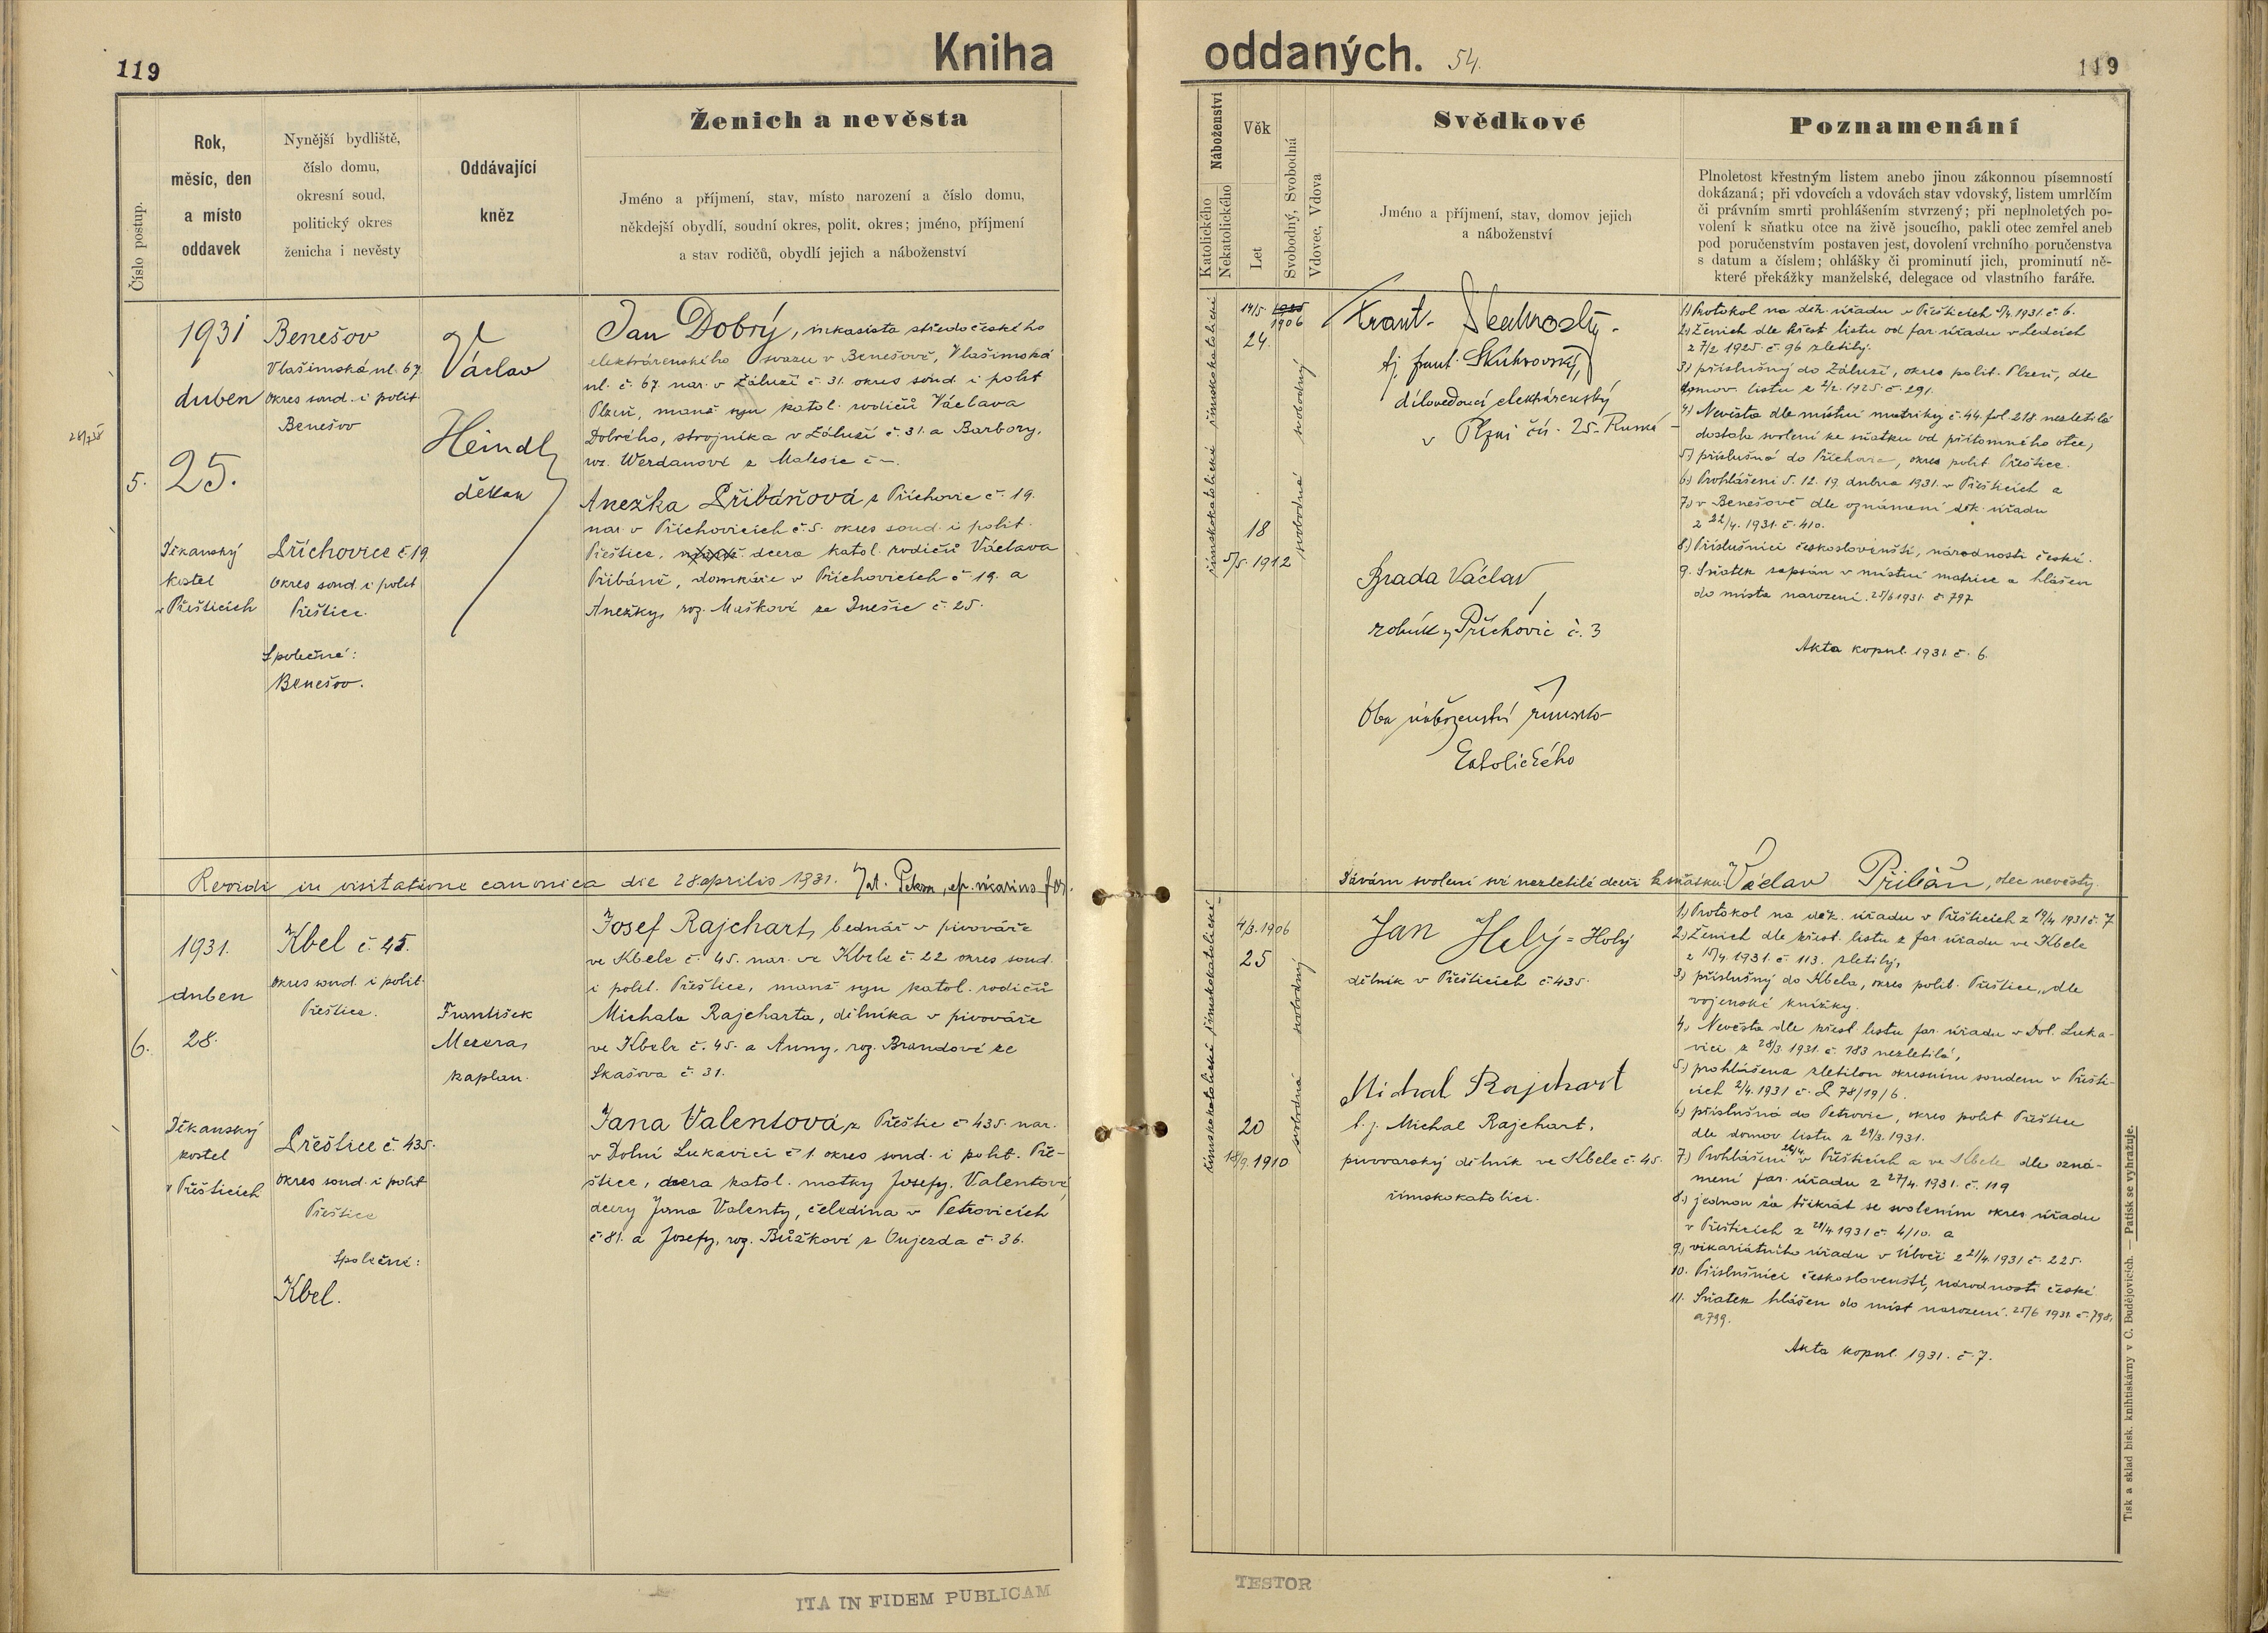 119
Kniha
oddaných.
54.
119
Číslo postup.
Rok,
měsíc, den
a místo
oddavek
Nynější bydliště,
číslo domu,
okresní soud,
politický okres
ženicha i nevěsty
Oddávající
kněz
Ženich a nevěsta
Jméno a příjmení, stav, místo narození a číslo domu,
někdejší obydlí, soudní okres, polit. okres; jméno, příjmení
a stav rodičů, obydlí jejich a náboženství
Náboženství
Katolického
Nekatolického
Věk
Let
Svobodný, Svobodná
Vdovec, Vdova
Svědkové
Jméno a příjmení, stav, domov jejich
a náboženství
Poznamenání
Plnoletost křestným listem anebo jinou zákonnou písemností
dokázaná; při vdovcích a vdovách stav vdovský, listem umrlčím
či právním smrti prohlášením stvrzený; při neplnoletých po-
volení k sňatku otce na živě jsoucího, pakli otec zemřel aneb
pod poručenstvím postaven jest, dovolení vrchního poručenstva
s datum a číslem; ohlášky či prominutí jich, prominutí ně-
které překážky manželské, delegace od vlastního faráře.
5.
1931
duben
25.
Děkanský
kostel
v Přešticích
Benešov
Vlašimská ul. 67.
okres soud. i polit.
Benešov
Příchovice č 19
okres soud. i polit
Přeštice.
Společné:
Benešov.
Václav
Heindl,
děkan
Jan Dobrý, inkasista středočeského
elektrárenského svazu v Benešově, Vlašimská
ul. č. 67. nar. v Záluží č. 31. okres soud. i polit
Plzeň, manž. syn katol. rodičů Václava
Dobrého, strojníka v Záluží č. 31. a Barbory,
roz. Werdanové z Malesic č –.
Anežka Přibáňová z Příchovic č. 19.
nar. v Příchovicích č. 5. okres soud. i polit.
Přeštice, manž. dcera katol. rodičů Václava
Přibáně, domkáře v Příchovicích č 19. a
Anežky, roz. Maškové ze Dnešic č. 25.
římskokatolické římskokatolické
14/5 1925
1906
24.
18
5/5. 1912
svobodná svobodný
Frant. Skuhrovský.
tj. frant. Skuhrovský,
dílovedoucí elektrárenský
v Plzni čís. 25.
Brada Václav,
rolník z Příchovic č. 3
Oba náboženství římsko-
katolického
1) Protokol na děk. úřadu v Přešticích 1931. č. 6.
2) Ženich dle křest. listu od far. úřadu v Ledcích
z 7/2 1925. č. 96 zletilý.
3) příslušný do Záluží, okres polit. Plzeň, dle
domov. listu z 2/2. 1925. č. 291.
4) Nevěsta dle místní matriky č. 44. fol. 218 nezletilá
dostala svolení ke sňatku od přítomného otce,
5) příslušná do Příchovic, okres polit Přeštice.
6) Prohlášeni 5. 12. 19. dubna 1931. v Přešticích a
7) v Benešově dle oznámení děk. úřadu
z 22/4. 1931. č. 410.
8) Příslušníci českoslovenští, národnosti české.
9. Sňatek zapsán v místní matrice a hlášen
do místa narození. 25/6 1931. č. 797
Akta kopul. 1931. č. 6.
Revidi in visitatione canonica die 28 aprilis 1931.
Dávám svolení své nezletilé dceři k sňatku: Václav Přibáň, otec nevěsty.
6.
1931.
duben
28.
Děkanský
kostel
v Přešticích
Kbel č. 45.
okres soud. i polit.
Přeštice.
Přeštice č. 435.
okres soud. i polit
Přeštice
Společné:
Kbel.
František
Mezera,
kaplan.
Josef Rajchart, bednář v pivováře
ve Kbele č. 45. nar. ve Kbele č. 22 okres soud.
i polit. Přeštice, manž syn katol. rodičů
Michala Rajcharta, dělníka v pivováře
ve Kbele č. 45. a Anny, roz. Brandové ze
Skašova č. 31.
Jana Valentová z Přeštic č 435. nar.
v Dolní Lukavici č 1. okres soud. i polit. Pře-
štice, dcera katol. matky Josefy, Valentové
dcery Jana Valenty, čeledína v Petrovicích
č. 81. a Josefy, roz. Bůžkové z Oujezda č. 36.
římskokatolické římskokatolické
4/3. 1906
25
20
18/9. 1910
svobodná svobodný
Jan Holý = Holý
dělník v Přešticích č. 435.
Michal Rajchart
t. j. Michal Rajchart,
pivovarský dělník ve Kbele č. 45.
římskokatolíci.
1) Protokol na děk. úřadu v Přešticích z 19/4 1931 č. 7
2) Ženich dle křest. listu z far úřadu ve Kbele
1931. č. 113. zletilý,
3) příslušný do Kbela, okres polit. Přeštice, dle
vojenské knížky.
4) Nevěsta dle křest listu far. úřadu v Dol. Luka-
vici z 28/3 1931. č. 183 nezletilá,
5) prohlášena zletilou okresním soudem v Přešti-
cích 2/4. 1931 č. P 78/19/6.
6) příslušná do Petrovic, okres polit Přeštice
dle domov. listu z 29/3. 1931.
7) Prohlášeni 26/4. v Přešticích a ve Kbele dle ozná-
mení far. úřadu z 27/4. 1931. č. 119
8) jednou za třikrát se svolením okres. úřadu
v Přešticích z 21/4 1931 č. 4/10. a
9) vikariátního úřadu v Úboči z 21/4. 1931 č. 225.
10. Příslušníci českoslovenští, národnosti české
11. Sňatek hlášen do míst narození. 25/6 1931. č. 798.
a 799.
Akta kopul. 1931. č. 7.
Tisk a sklad bisk. knihtiskárny v Č. Budějovicích. — Patisk se vyhražuje.
ITA IN FIDEM PUBLICAM
TESTOR